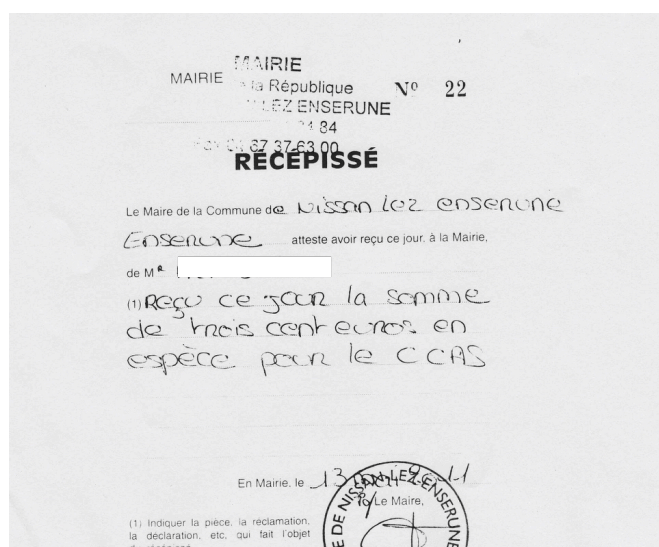 MAIRIE
MAIRIE
la République
Nº 22
LEZ ENSERUNE
84
67 37-63 00
RÉCÉPISSÉ
Le Maire de la Commune de Nissan lez enserune
Enserune atteste avoir reçu ce jour. à la Mairie,
de Mᴿ
(1) Reçu ce jour la somme
de trois cent euros en
espèce pour le CCAS
En Mairie, le 13 2011
Le Maire,
E DE NISSAN-LEZ-ENSERUNE
(1) Indiquer la pièce, la réclamation,
la déclaration, etc, qui fait l'objet